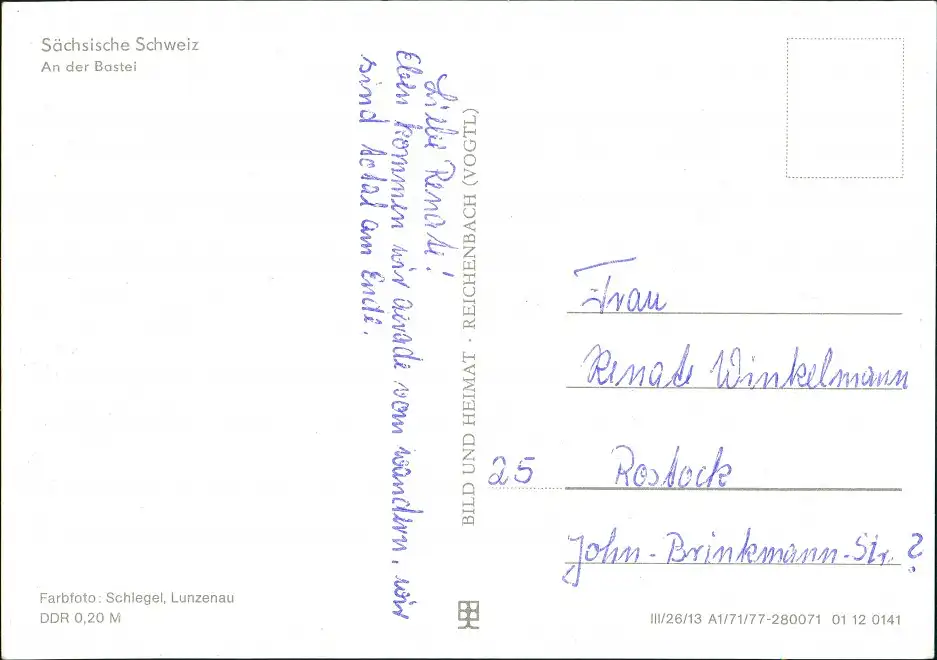 Sächsische Schweiz
An der Bastei
Liebe Renate!
Eben kommen wir gerade vom wandern, wir
sind total am Ende.
BILD UND HEIMAT · REICHENBACH (VOGTL)
Frau
Renate Winkelmann
25 Rostock
John-Brinkmann-Str. ?
Farbfoto: Schlegel, Lunzenau
DDR 0,20 M
III/26/13 A1/71/77-280071 01 12 0141